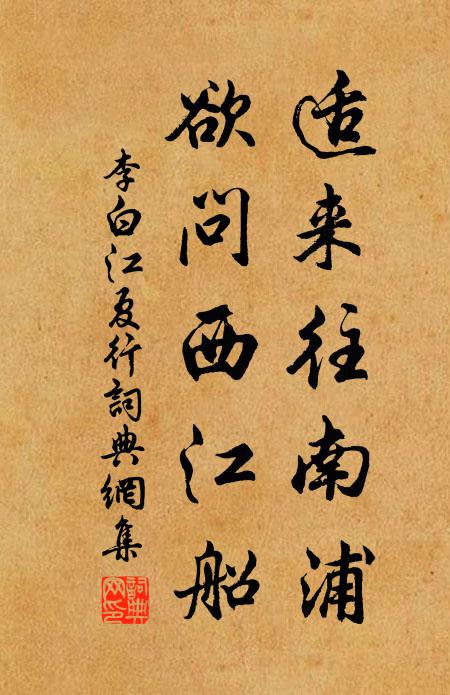 适来往南浦
欲问西江船
李白江夏行詞典網集
詞典網印